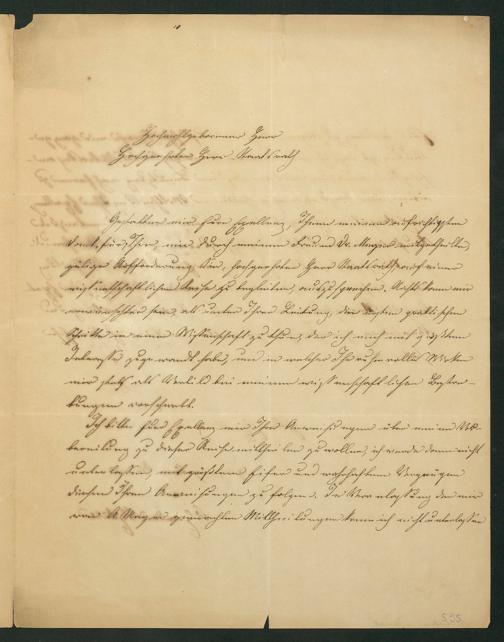 Hochwohlgeborener Herr
Hochgeehrter Herr Staatsrath
Gestatten mir Eure Exellenz, Ihnen meinen aufrichtigsten
Dank für Ihre, mir durch meinen Freund Dr. Meyer mitgetheilte,
gütige Aufforderung, Sie, hochgeehrter Herr Staatsrath, auf einer
wissenschaftlichen Reise zu begleiten, auszusprechen. Nichts kann mir
erwünschter sein, als unter Ihrer Leitung, die ersten praktischen
Schritte in einer Wissenschaft zu thun, der ich mich mit größtem
Interesse zugewandt habe, und in welcher Ihr ruhmvolles Wirken
mir stets als Vorbild bei meinen wissenschaftlichen Bestre-
bungen vorschwebt.
Ich bitte Eure Exellenz mir Ihre Anweisungen über meine Vor-
bereitung zu dieser Reise mittheilen zu wollen, ich werde dann nicht
unterlassen, mit größtem Eifer und wahrhaftem Vergnügen
diesen Ihren Anweisungen zu folgen. In Veranlassung der mir
von Meyer gemachten Mittheilungen kann ich nicht unterlassen